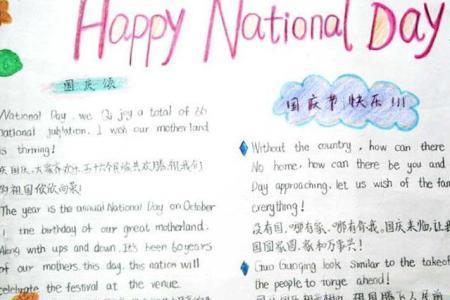 Happy National Day
国庆颂
National Day, we joy a total of 66
national jubilation. I wish our motherland
is thriving!
庆国庆,大家齐欢乐,五十六个民族共欢腾,祖我们
的祖国欣欣向荣!
The year is the annual National Day on October
1 the birthday of our great motherland.
Along with ups and down. It's been 60 years
of our mothers. this day, this nation will
celebrate the festival at the venue.
国庆节快乐!!!
Without the country, how can there
No home, how can there be you and
Day approaching, let us wish of the fam
everything!
没有国,哪有家,哪有你我。国庆来临,让我
国圆家圆,家和万事兴!
Guo Guoqing look similar to the takeof
the people to surge ahead!